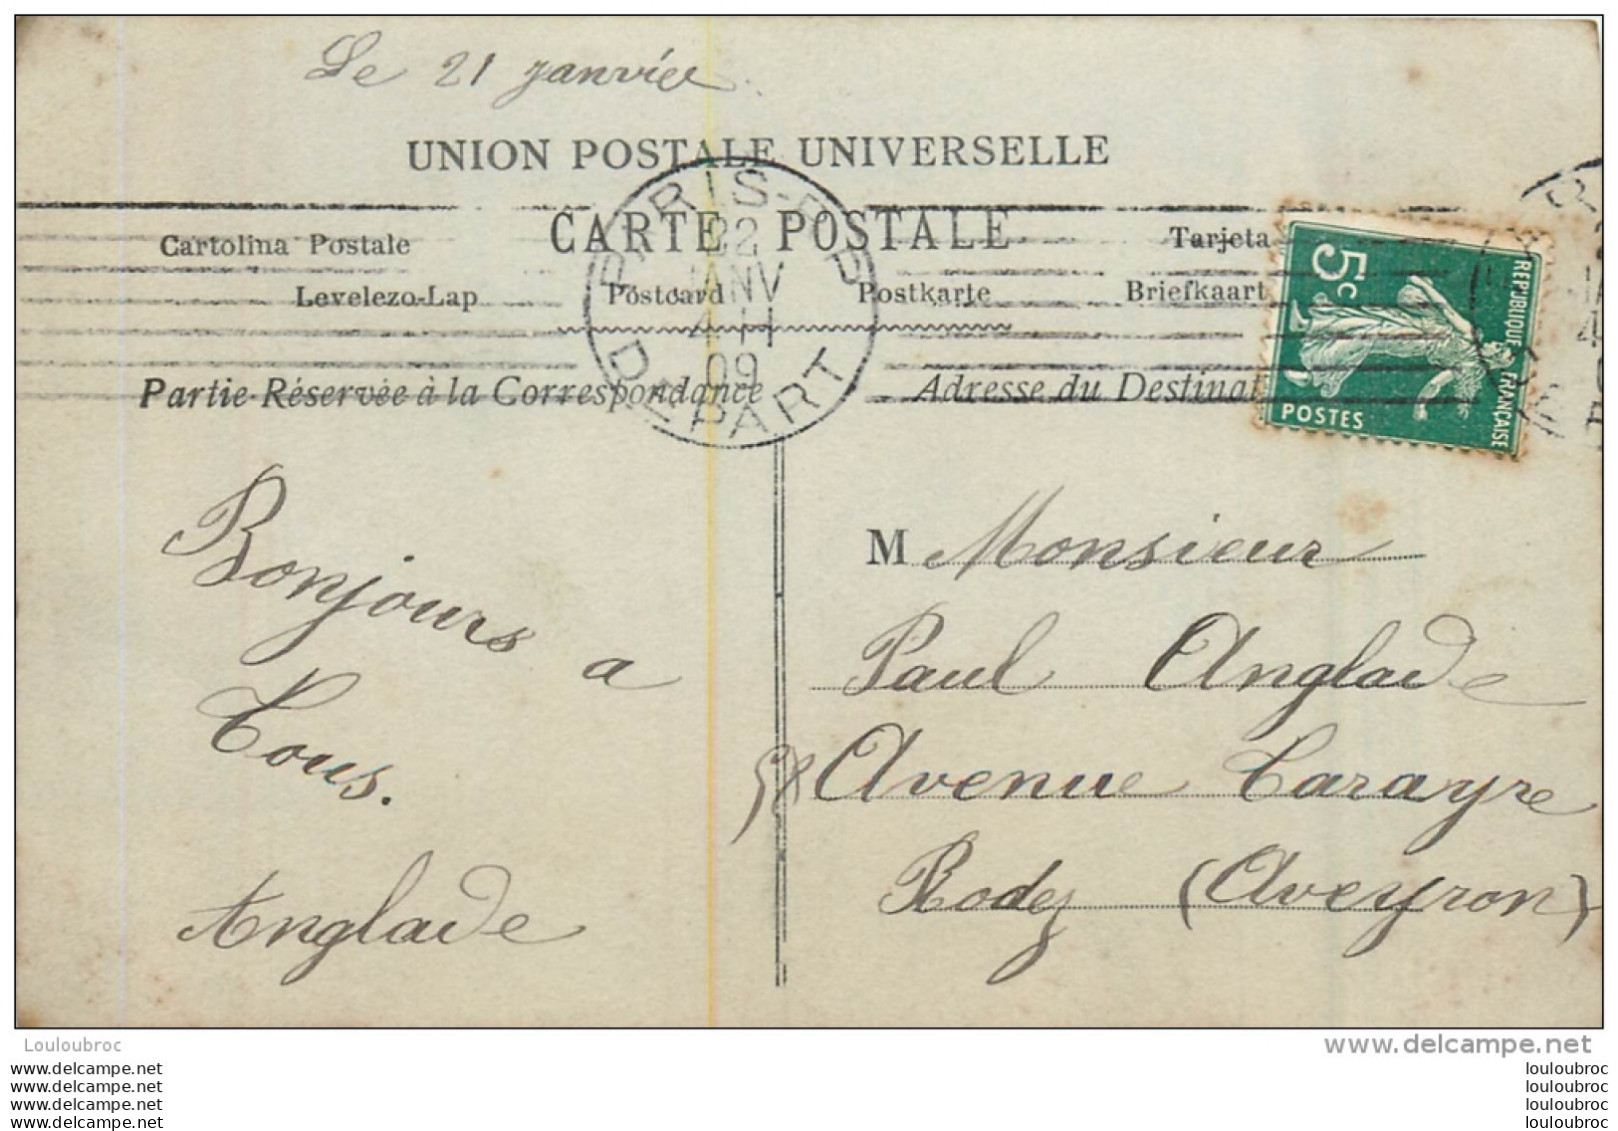 Le 21 janviée
UNION POSTALE UNIVERSELLE
CARTE POSTALE
Cartolina Postale
Tarjeta
Levelezo-Lap
Postcard
Postkarte
Briefkaart
PARIS-
22
JANV
4 H
09
DEPART
5c
REPUBLIQUE FRANÇAISE
POSTES
Partie Réservée à la Correspondance
Adresse du Destinat
Bonjours a
Tous.
Anglade
M Monsieur
Paul Anglade
Avenue Tarayre
Rodez (Aveyron)
Louloubroc
www.delcampe.net
www.delcampe.net
www.delcampe.net
www.delcampe.net
www.delcampe.net
louloubroc
louloubroc
louloubroc
louloubroc